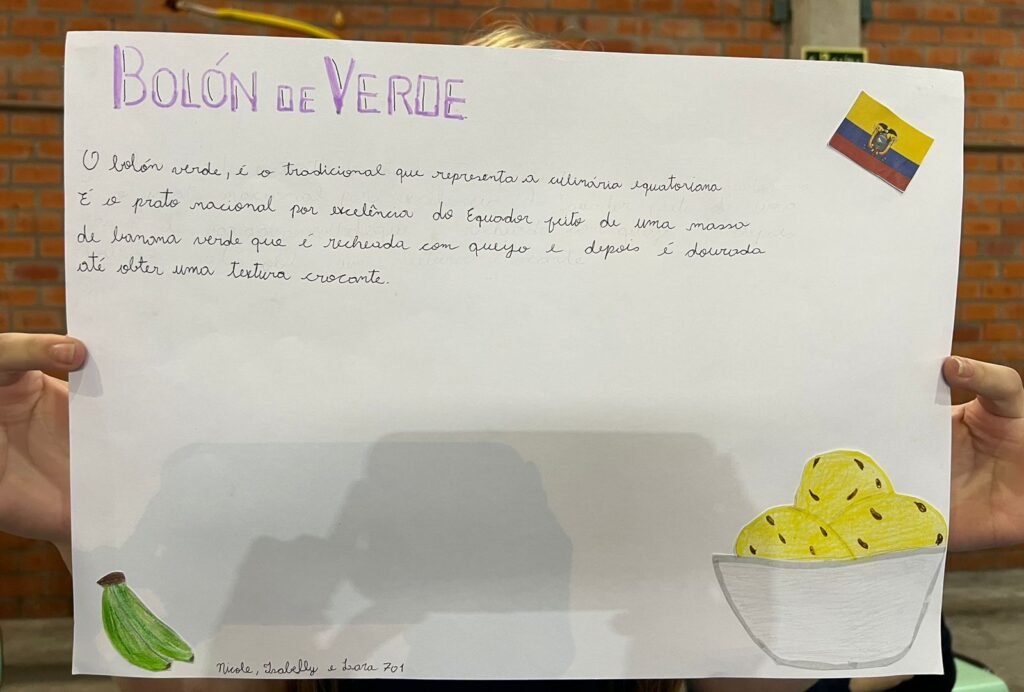 BOLÓN DE VERDE
O bolón verde, é o tradicional que representa a culinária equatoriana
É o prato nacional por excelência do Equador feito de uma massa
de banana verde que é recheada com queijo e depois é dourada
até obter uma textura crocante.
Nicole, Isabelly e Lara 701